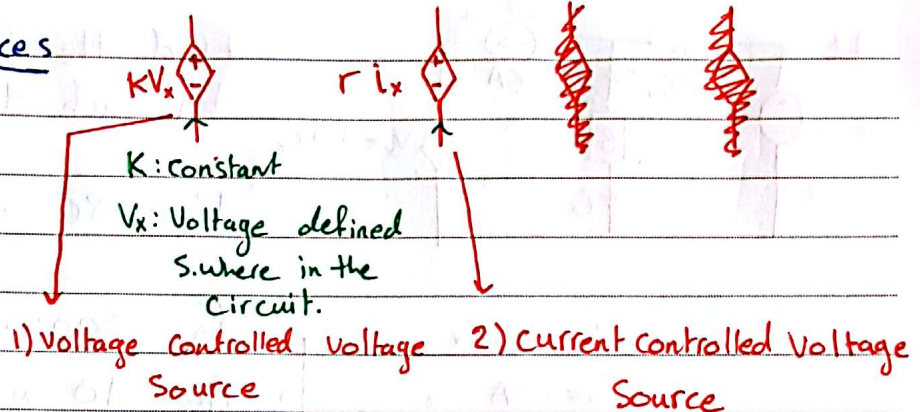 ces
+ -
kVx
+ -
r ix
K: constant
Vx: Voltage defined
S.where in the
Circuit.
1) Voltage controlled voltage
Source
2) Current controlled Voltage
Source